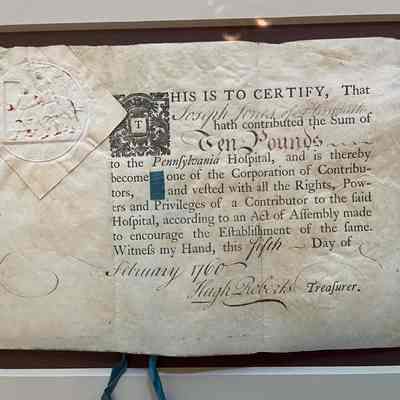 THIS IS TO CERTIFY, That
Joseph Jones
hath contributed the Sum of
Ten Pounds
to the Pennsylvania Hospital, and is thereby
become one of the Corporation of Contribu-
tors, and vested with all the Rights, Pow-
ers and Privileges of a Contributor to the said
Hospital, according to an Act of Assembly made
to encourage the Establishment of the same.
Witness my Hand, this fifth Day of
February 1760
Hugh Roberts Treasurer.